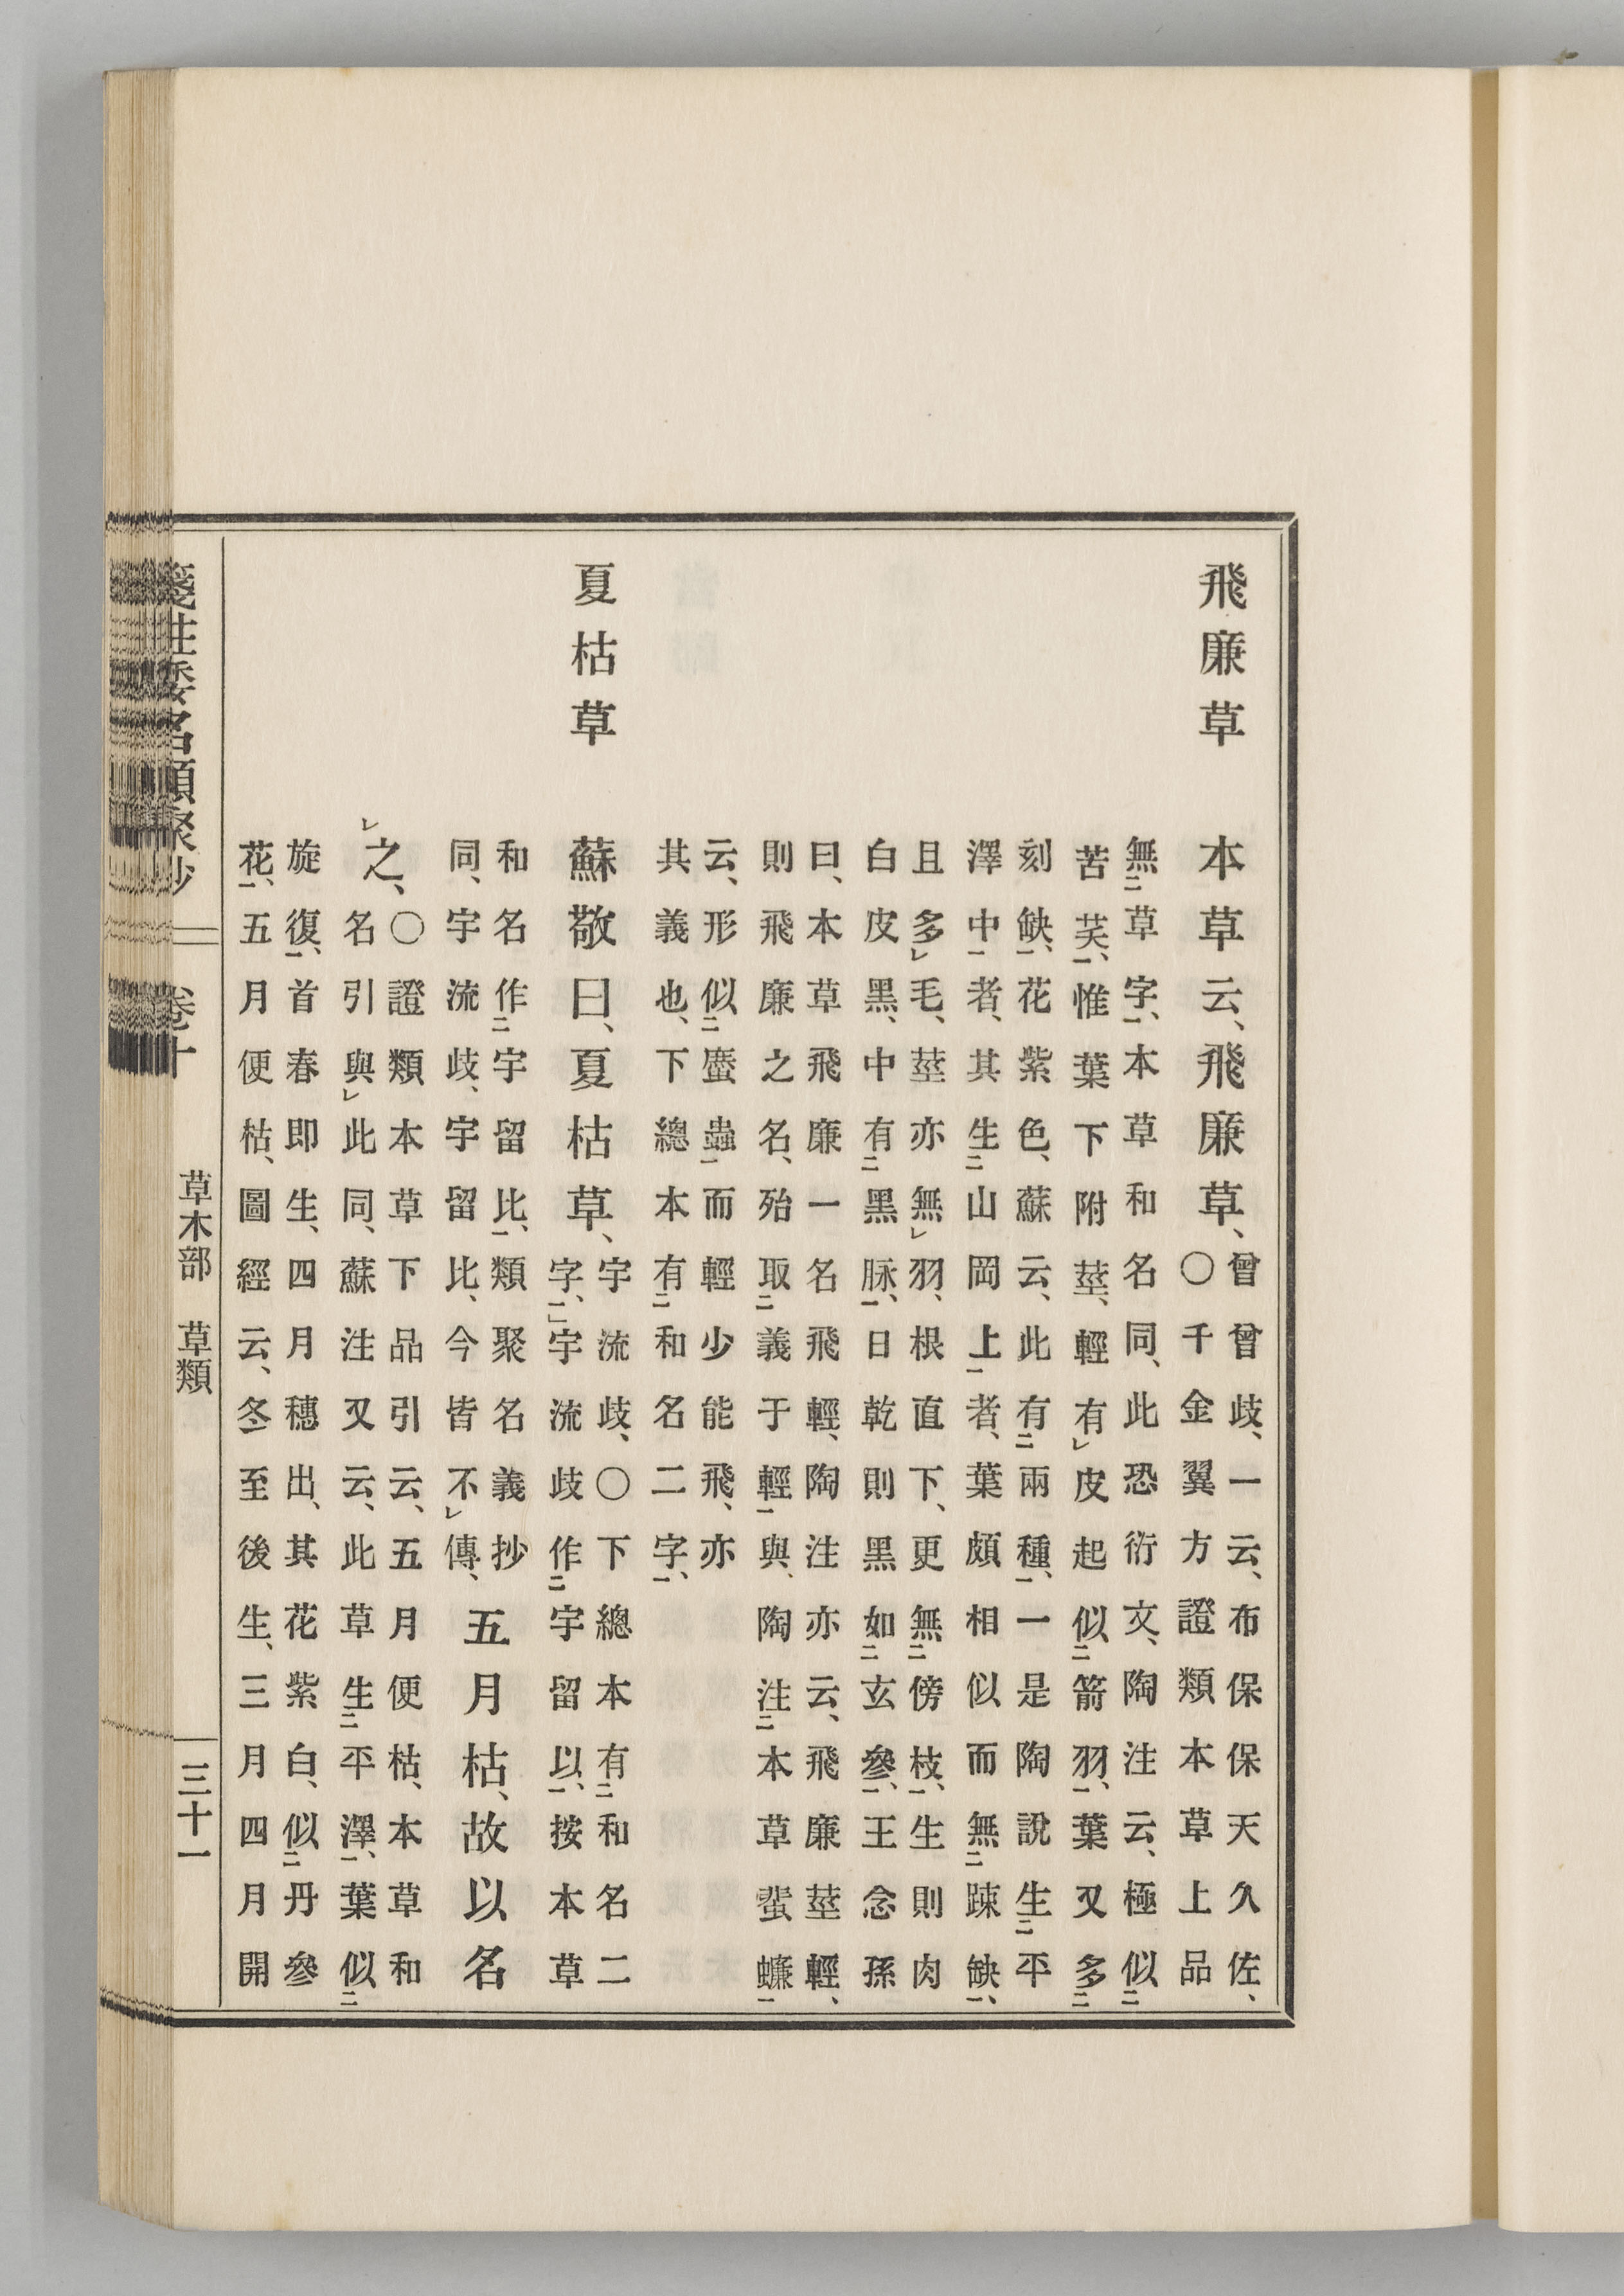 飛廉草　本草云、飛廉草、曾曾歧、一云、布保保天久佐、
〇千金翼方證類本草上品
無二草字一、本草和名同、此恐衍文、陶注云、極似二
苦芙一、惟葉下附莖、輕有レ皮起似二箭羽一、葉又多二
刻缺一、花紫色、蘇云、此有二兩種一、一是陶說生二平
澤中一者、其生二山岡上一者、葉頗相似而無二踈缺一、
且多レ毛、莖亦無レ羽、根直下、更無二傍枝一、生則肉
白皮黑、中有二黑脉一、日乾則黑如二玄參一、王念孫
曰、本草飛廉一名飛輕、陶注亦云、飛廉莖輕、
則飛廉之名、殆取二義于輕一與、陶注二本草蜚蠊一
云、形似二䗪蟲一而輕少能飛、亦
其義也、下總本有二和名二字一、
夏枯草　蘇敬曰、夏枯草、宇流歧、〇下總本有二和名二
字一、宇流歧作二宇留以一、按本草
和名作二宇留比一、類聚名義抄
同、宇流歧、宇留比、今皆不レ傳、
五月枯、故以名
レ之、〇證類本草下品引云、五月便枯、本草和
名引與レ此同、蘇注又云、此草生二平澤一、葉似二
旋復一、首春即生、四月穗出、其花紫白、似二丹參
花一、五月便枯、圖經云、冬至後生、三月四月開
箋注倭名類聚抄　卷十　草木部　草類　三十一